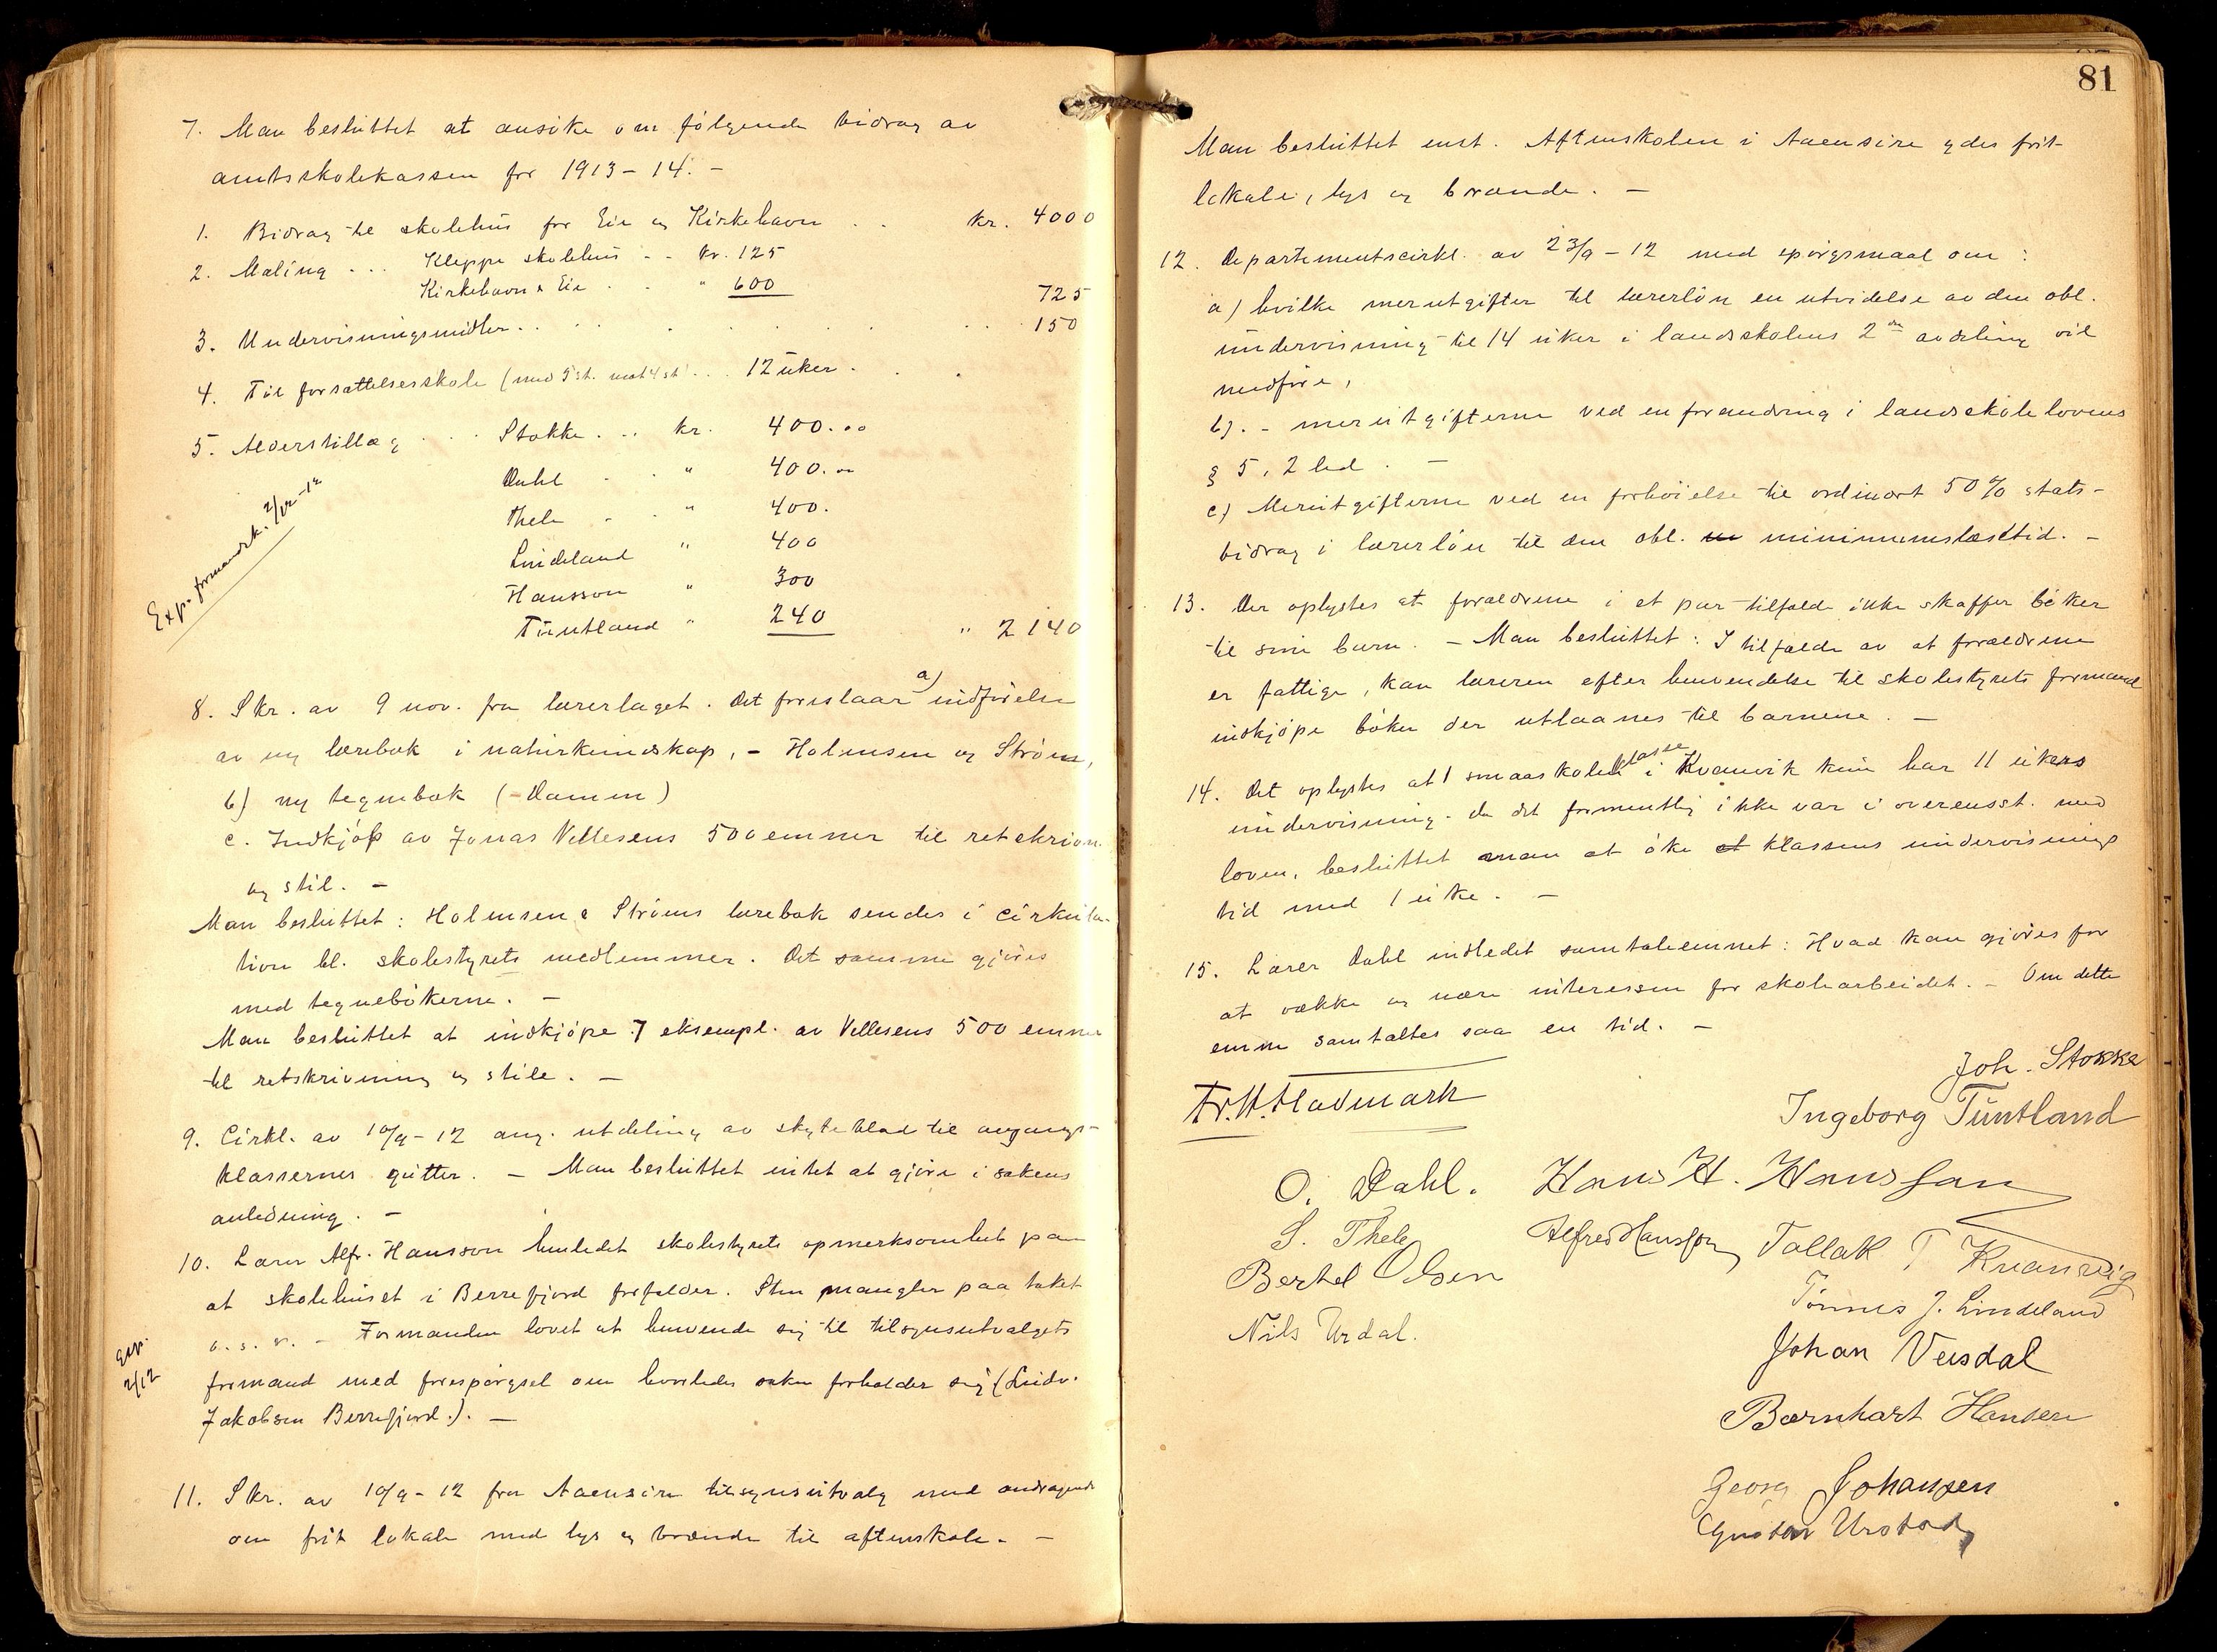 7. Man besluttet at ansöke om fölgende bidrag av
amtsskolekassen for 1913-14. -
1. Bidrag til skolehus for Eie og Kirkehavn . . kr. 4000
2. Maling . . . Kleppe skolehus . . kr. 125
Kirkehavn & Eie . . " 600 725
3. Undervisningsmidler . . . . 150
4. Til fortsættelsesskole (med 5 st. mot 4 st) . . 12 uker . .
5. Alderstillæg . . . Stokke . . kr. 400.00
Dahl . . " 400.00
Thele . . " 400.
Lindeland " 400
Hansson " 300
Tuntland " 240 " 2140
Exp. formandsk. 2/12-12
8. Skr. av 9 nov. fra lærerlaget. Det foreslaar a) indförelse
av ny lærebok i naturkundskap, - Holmsen og Ström,
b) ny tegnebok (-Damm)
c. Indkjöp av Jonas Vellesens 500 emner til retskrivn.
og stil. -
Man besluttet: Holmsen & Ströms lærebok sendes i cirkula-
tion bl. skolestyrets medlemmer. Det samme gjöres
med tegnebökerne. -
Man besluttet at indkjöpe 7 eksempl. av Vellesens 500 emner
til retskrivning og stile. -
9. Cirkl. av 10/9-12 ang. utdeling av skyteblad til avgangs-
klassernes gutter. - Man besluttet intet at gjöre i sakens
anledning. -
10. Lærer Alfr. Hansson henledet skolestyrets opmerksomhet paa
at skolehuset i Berrefjord forfalder. Sten mangler paa taket
o. s. v. - Formanden lovet at henvende sig til tilsynsutvalgets
formand med forespörgsel om hvorledes saken forholder sig (Ludv.
Jakobsen Berrefjord.). -
Exp.
2/12
11. Skr. av 10/9-12 fra Aaensire tilsynsutvalg med andragende
om frit lokale med lys og brænde til aftenskole. -
81
Man besluttet enst. Aftenskolen i Aaensire ydes frit
lokale, lys og brænde. -
12. Departementscirkl. av 23/9-12 med spörgsmaal om:
a) hvilke merutgifter til lærerlön en utvidelse av den obl.
undervisning til 14 uker i landsskolens 2den avdeling vil
medföre,
b). - merutgifterne ved en forandring i landsskolelovens
§ 5, 2 led. -
c) Merutgifterne ved en forhöielse til ordinært 50% stats-
bidrag i lærerlön til den obl. minimumslæsetid. -
13. Der oplystes at forældrene i et par tilfælde ikke skaffer böker
til sine barn. - Man besluttet: I tilfælde av at forældrene
er fattige, kan læreren efter henvendelse til skolestyrets formand
indkjöpe böker der utlaanes til barnene. -
14. Det oplystes at 1 smaaskoleklasse i Kvanvik kun har 11 ukers
undervisning. Da det formentlig ikke var i overensst. med
loven, besluttet man at öke klassens undervisnings
tid med 1 uke. -
15. Lærer Dahl indledet samtaleemnet: Hvad kan gjöres for
at vække og nære interessen for skolearbeidet. - Om dette
emne samtaltes saa en tid. -
Joh. Stokke
Fr. H. Hadmark
Ingeborg Tuntland
O. Dahl. Hans H. Hansson
S. Thele Alfred Hansson Tallak T Kvanvig
Bertel Olsen
Tönnes J. Lindeland
Nils Urdal.
Johan Veisdal
Bernhart Hansen
Georg Johansen
Gustav Urstad